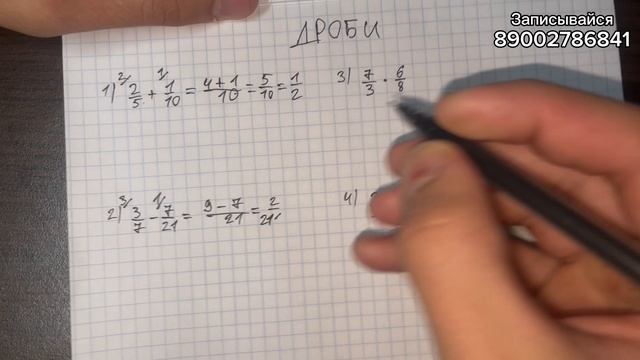 Записывайся
89002786841
ДРОБИ
1) 2/ 2/5 + 1/ 1/10 = 4+1/10 = 5/10 = 1/2
3) 7/3 · 6/8
2) 3/ 3/7 - 1/ 7/21 = 9-7/21 = 2/21
4)